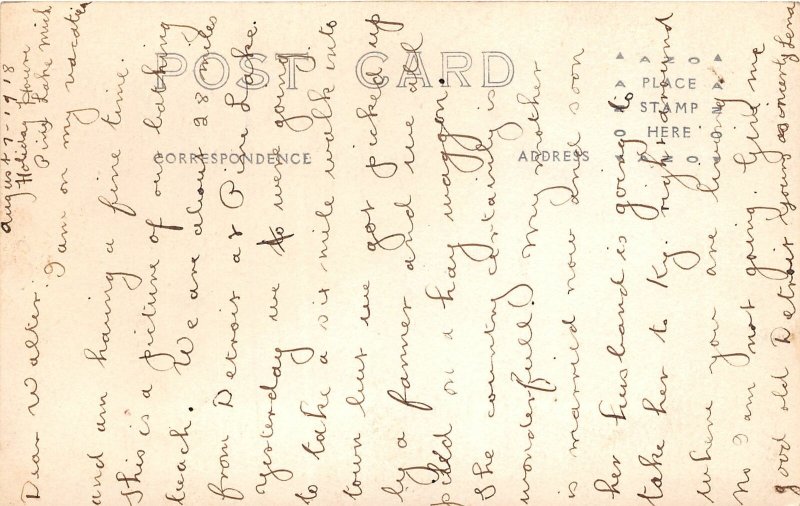 POST CARD
CORRESPONDENCE
ADDRESS
PLACE
STAMP
HERE
AZO
AZO
august 7-1918
Holiday House
Pine Lake Mich
Dear Walter.
I am on my vacation
and am having a fine time.
This is a picture of our bathing
beach. We are about 28 miles
from Detroit at Pine Lake.
Yesterday we were going
to take a six mile walk into
town but we got picked up
by a farmer and we all
piled on a hay waggon.
The country certainly is
wonderfull. My mother
is married now and soon
her husband is going to
take her to Ky. right around
where you are living
No I am not going. Give me
good old Detroit Yours sincerely Lena